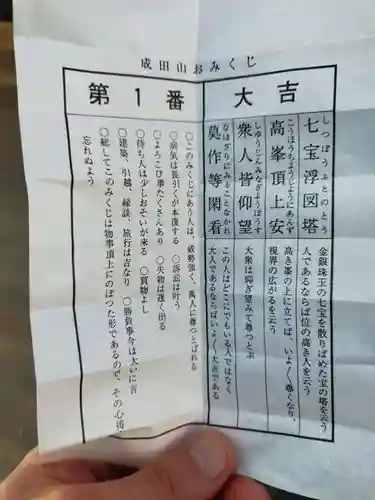 成田山おみくじ
第1番
大吉
七宝浮図塔
しつぽうふとのとう
金銀珠玉の七宝を散りばめた宝の塔を云う
人であるならば位の高き人を云う
高峯頂上安
こうほうちようじようにあんず
高き峯の上に立てば、いよ〳〵尊くなり、
視界の広がるを云う
衆人皆仰望
しゆうじんみなぎようぼうす
大衆は仰ぎ望みて尊つとぶ
莫作等閑看
なほざりにみることなかれ
この人はどこにでもいる人ではなく
大人であるならばいよ〳〵大吉である
○このみくじにあう人は、威勢強く、萬人に尊つとばれる
○病気は長引くが本復する ○訴訟は叶う
○よろこび事たくさんあり ○失物は遅く出る
○待ち人は少しおそいが来る ○買物よし
○建築、引越、縁談、旅行は吉なり ○勝負事今は大いに吉
○総してこのみくじは物事頂上にのぼった形であるので、その心得
忘れぬよう